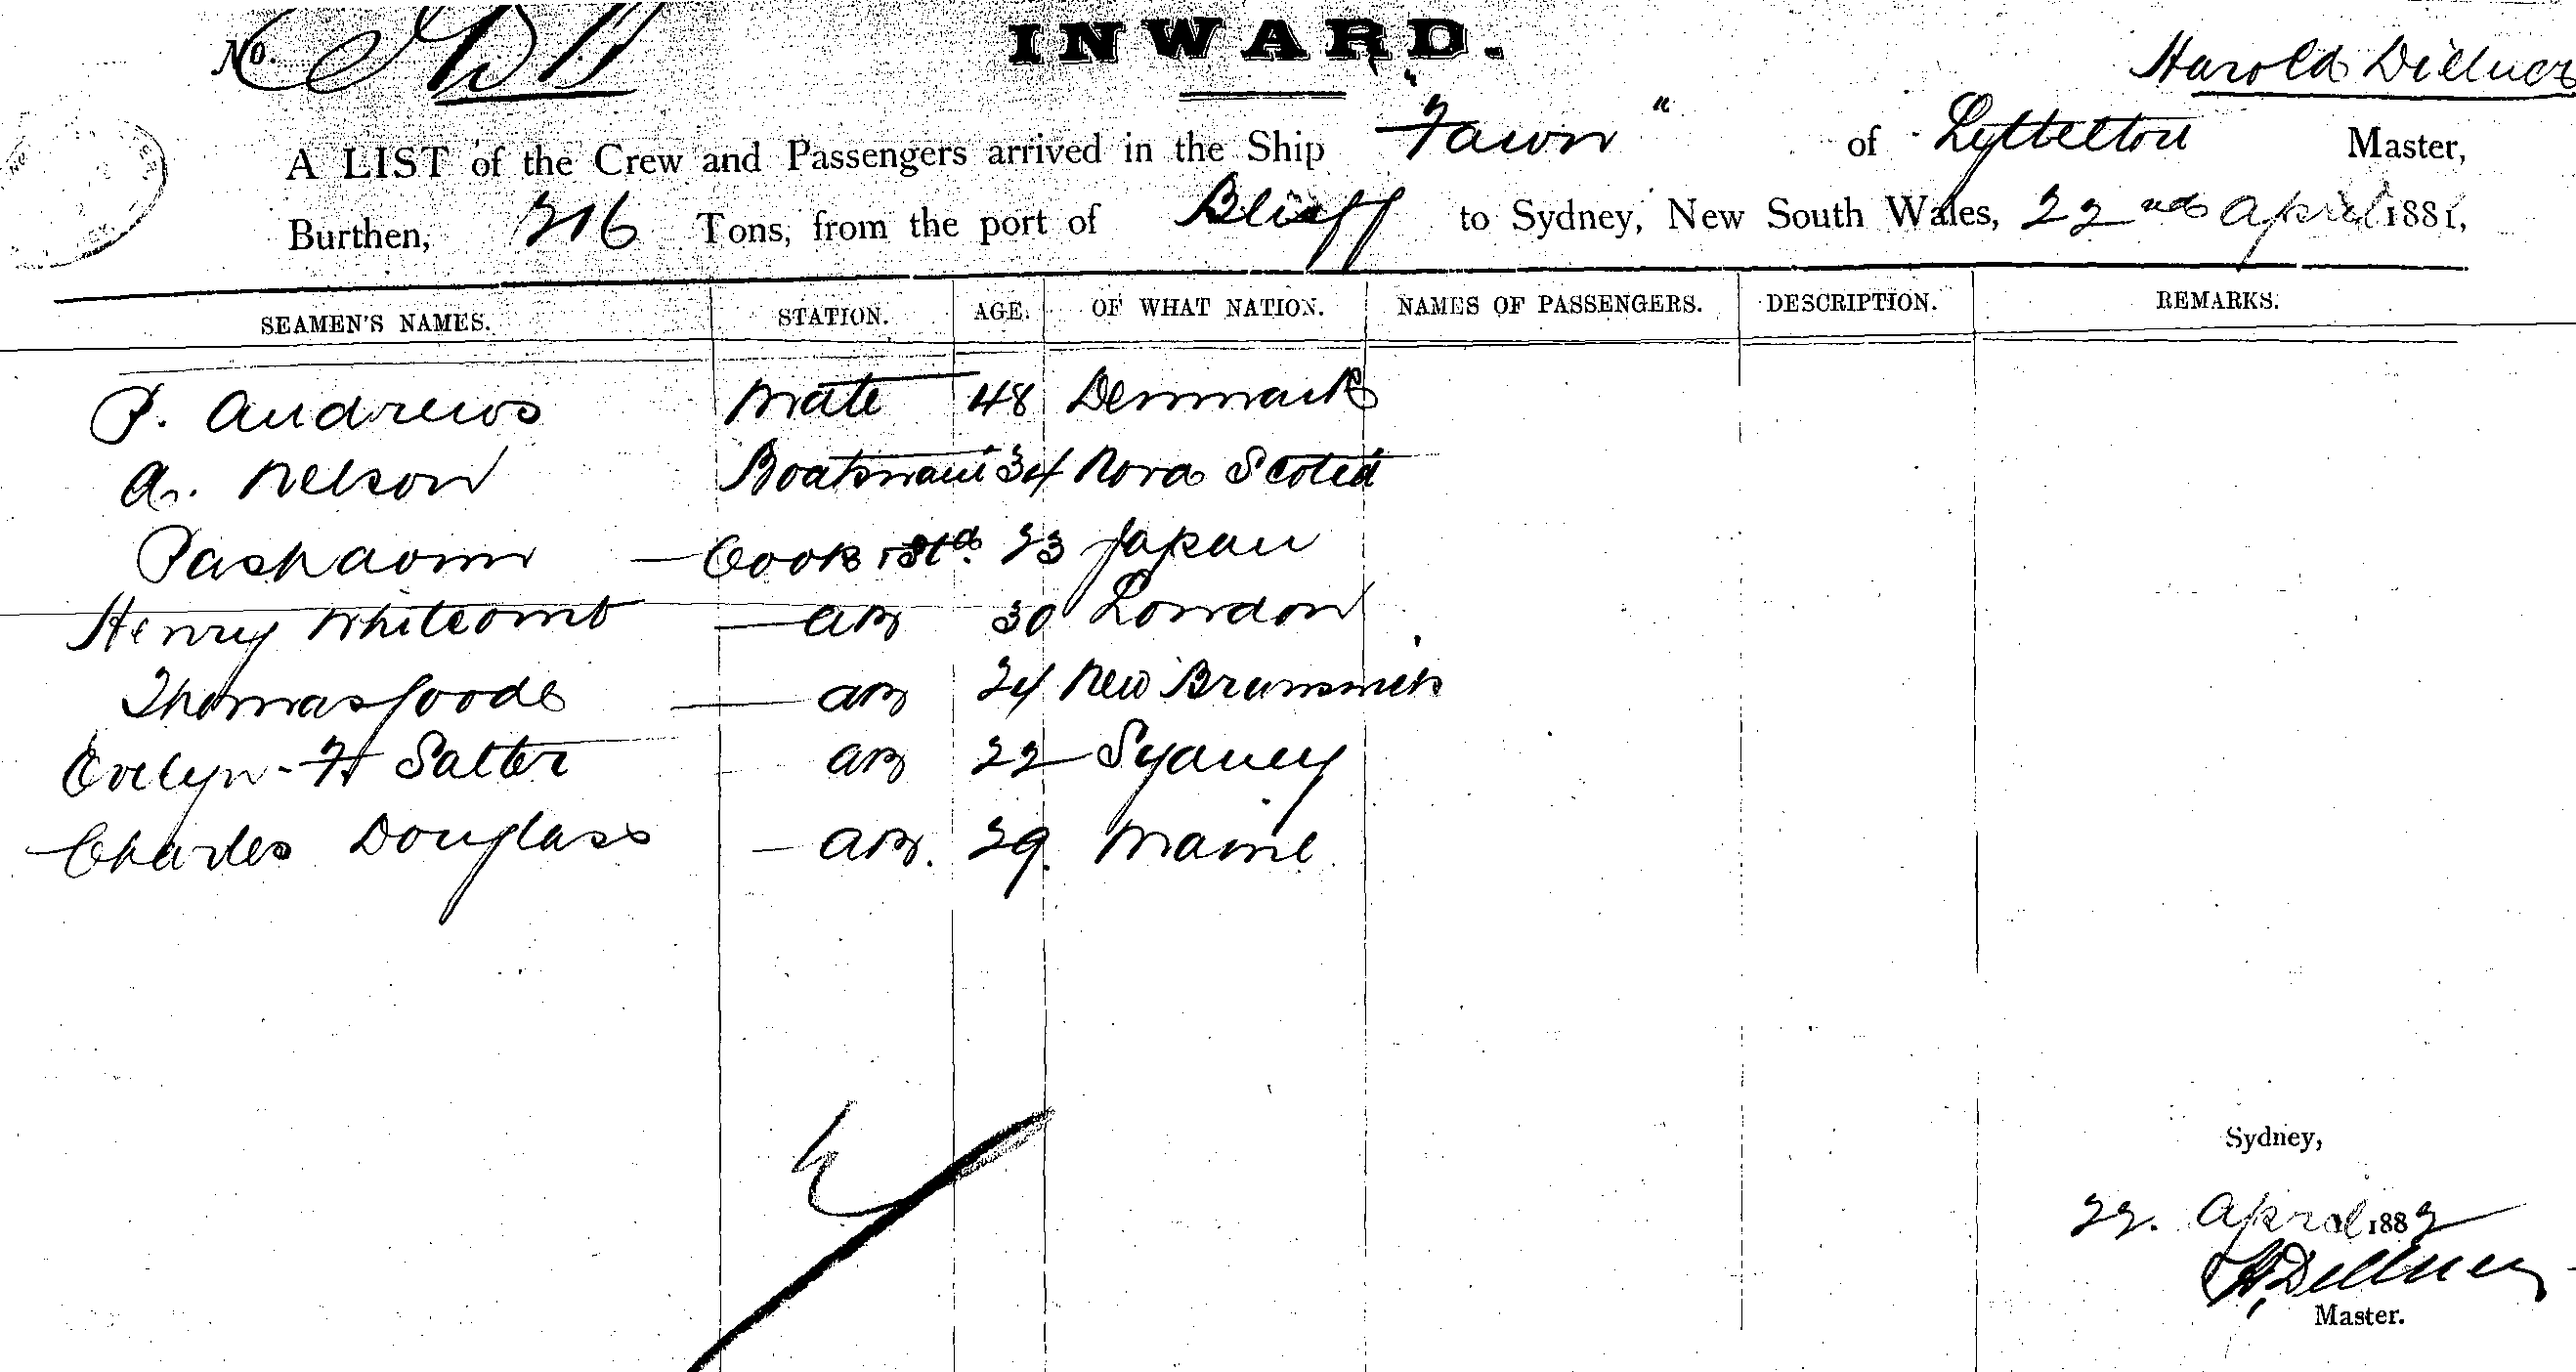 No.
INWARD.
Harold Dillner
A LIST of the Crew and Passengers arrived in the Ship "Fawn" of Lyttelton Master,
Burthen, 216 Tons, from the port of Bluff to Sydney, New South Wales, 22nd April 1881,
SEAMEN'S NAMES. STATION. AGE. OF WHAT NATION. NAMES OF PASSENGERS. DESCRIPTION. REMARKS.
P. Andrews Mate 48 Denmark
A. Nelson Boatswain 34 Nova Scotia
Cook & Std. 23 Japan
Henry Whitcomb AB 30 London
Thomas Goode AB 24 New Brunswick
Evelyn H Salter AB 22 Sydney
Charles Douglass AB. 29. Maine
Sydney,
22. April 1882
H. Dillner
Master.